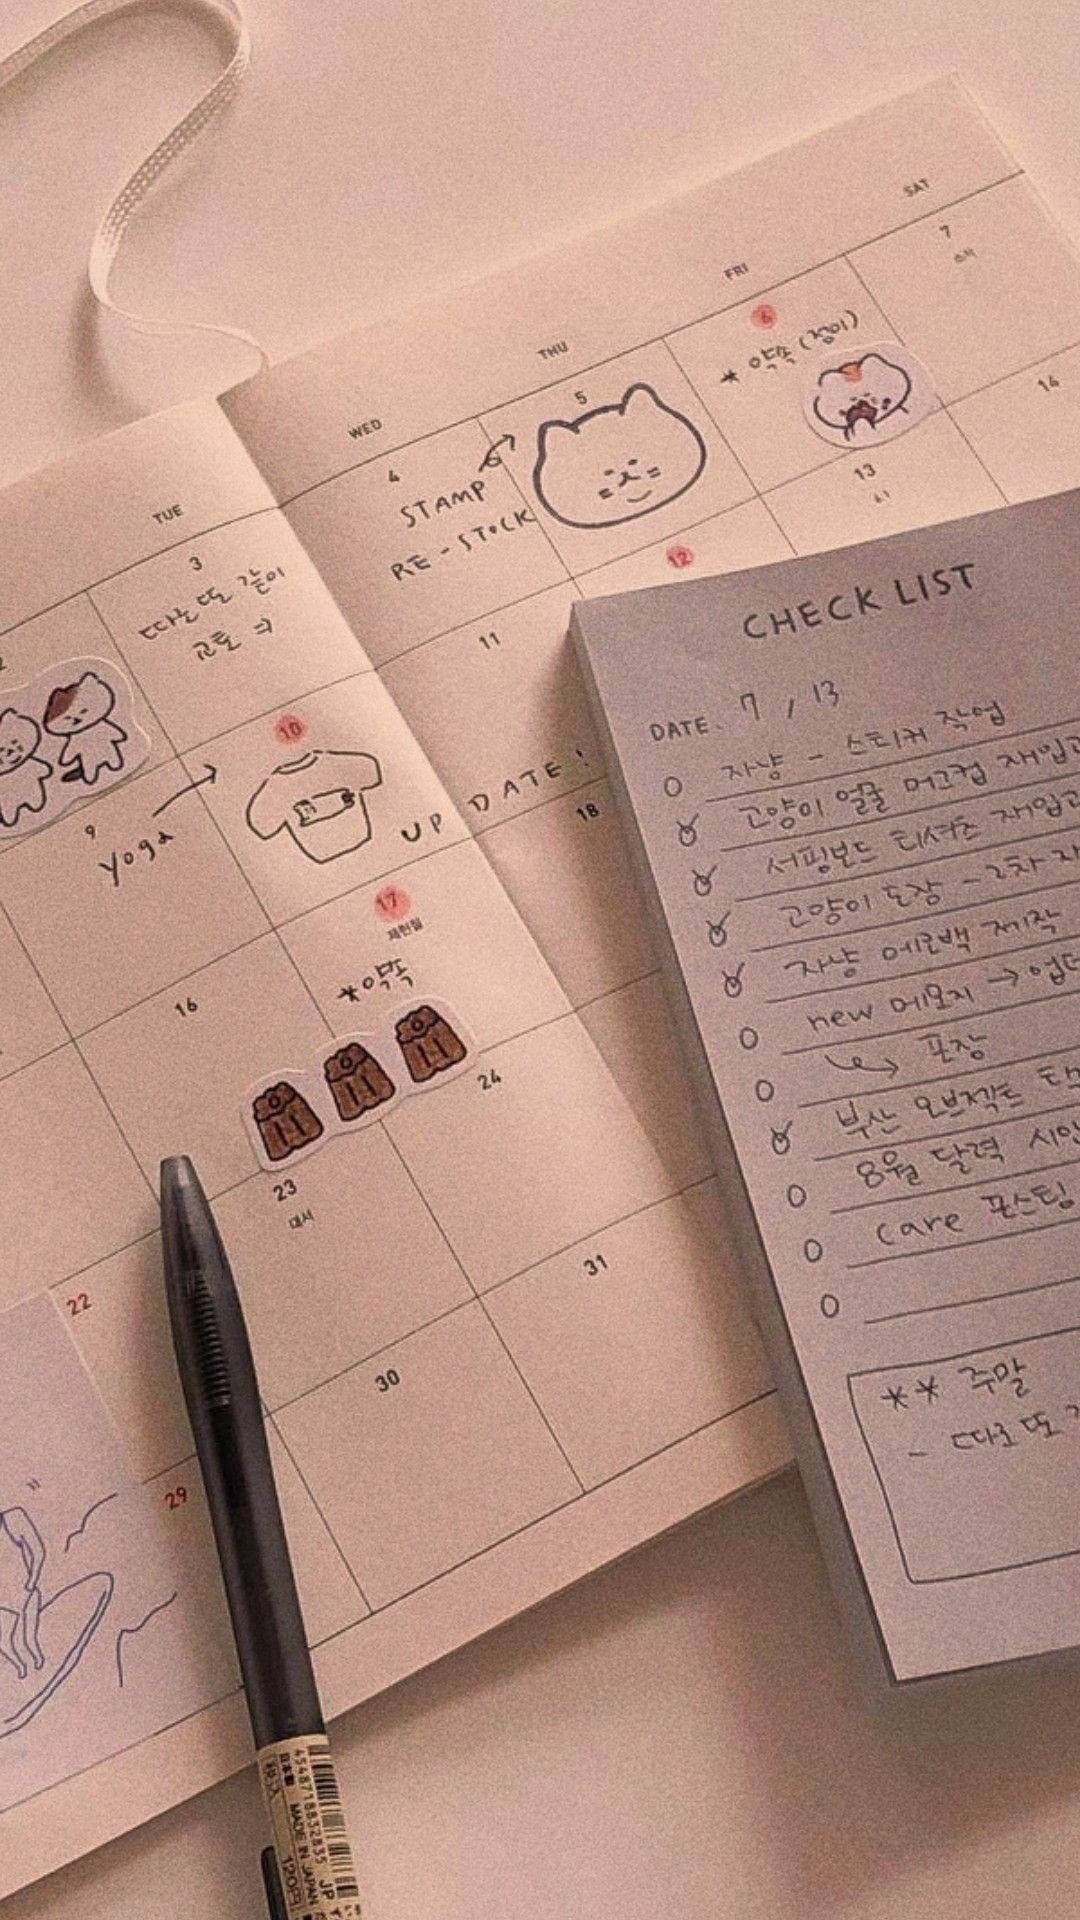 TUE
WED
THU
FRI
SAT
3
따로 또 같이
교토
4
STAMP
RE-STOCK
5
6
* 약속 (정이)
7
소서
9
yoga
10
UP DATE!
11
12
13
14
16
17
제헌절
*약속
18
22
23
대서
24
29
30
31
CHECK LIST
DATE. 7 / 13
자냥 - 스티커 작업
고양이 얼굴 머그컵 재입고
서핑보드 티셔츠 재입고
고양이 도장 - 2차
자냥 에코백 제작
new 메모지 →
포장
부산 오브젝트
8월 달력 시안
care 포스팅
** 주말
- 따로 또
4548718832835
MADE IN JAPAN
日本製